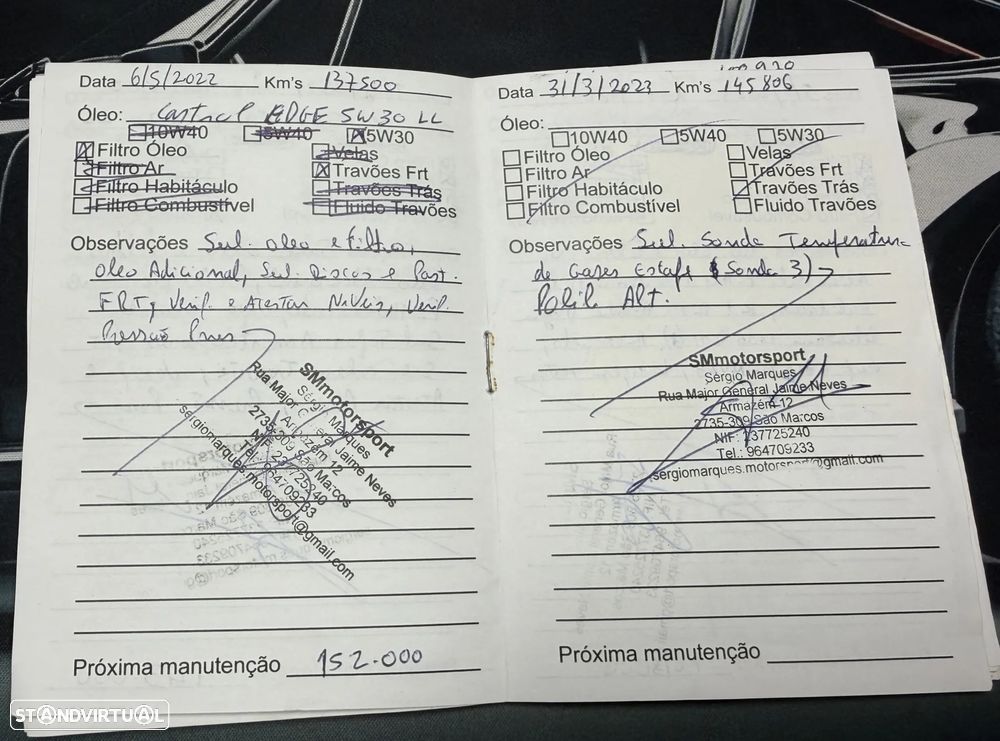 Data 6/5/2022 Km's 137500
Óleo: Castrol EDGE 5W30 LL
10W40 5W40 5W30
Filtro Óleo Velas
Filtro Ar Travões Frt
Filtro Habitáculo Travões Trás
Filtro Combustível Fluido Travões
Observações Sub. oleo e filtro,
Oleo Adicional, Sub. Discos e Past.
FRT, Verif. e Atestar Niveis, Verif.
Pressão Pneus
SMmotorsport
Sérgio Marques
Rua Major General Jaime Neves
Armazém 12
2735-309 São Marcos
NIF: 237725240
Tel.: 964709233
sergiomarques.motorsport@gmail.com
Próxima manutenção 152.000
Data 31/3/2023 Km's 145806
Óleo:
10W40 5W40 5W30
Filtro Óleo Velas
Filtro Ar Travões Frt
Filtro Habitáculo Travões Trás
Filtro Combustível Fluido Travões
Observações Sub. Sonda Temperatura
de Gases Escape (Sonda 3)
Polie Alt.
SMmotorsport
Sérgio Marques
Rua Major General Jaime Neves
Armazém 12
2735-309 São Marcos
NIF: 237725240
Tel.: 964709233
sergiomarques.motorsport@gmail.com
Próxima manutenção
STANDVIRTUAL